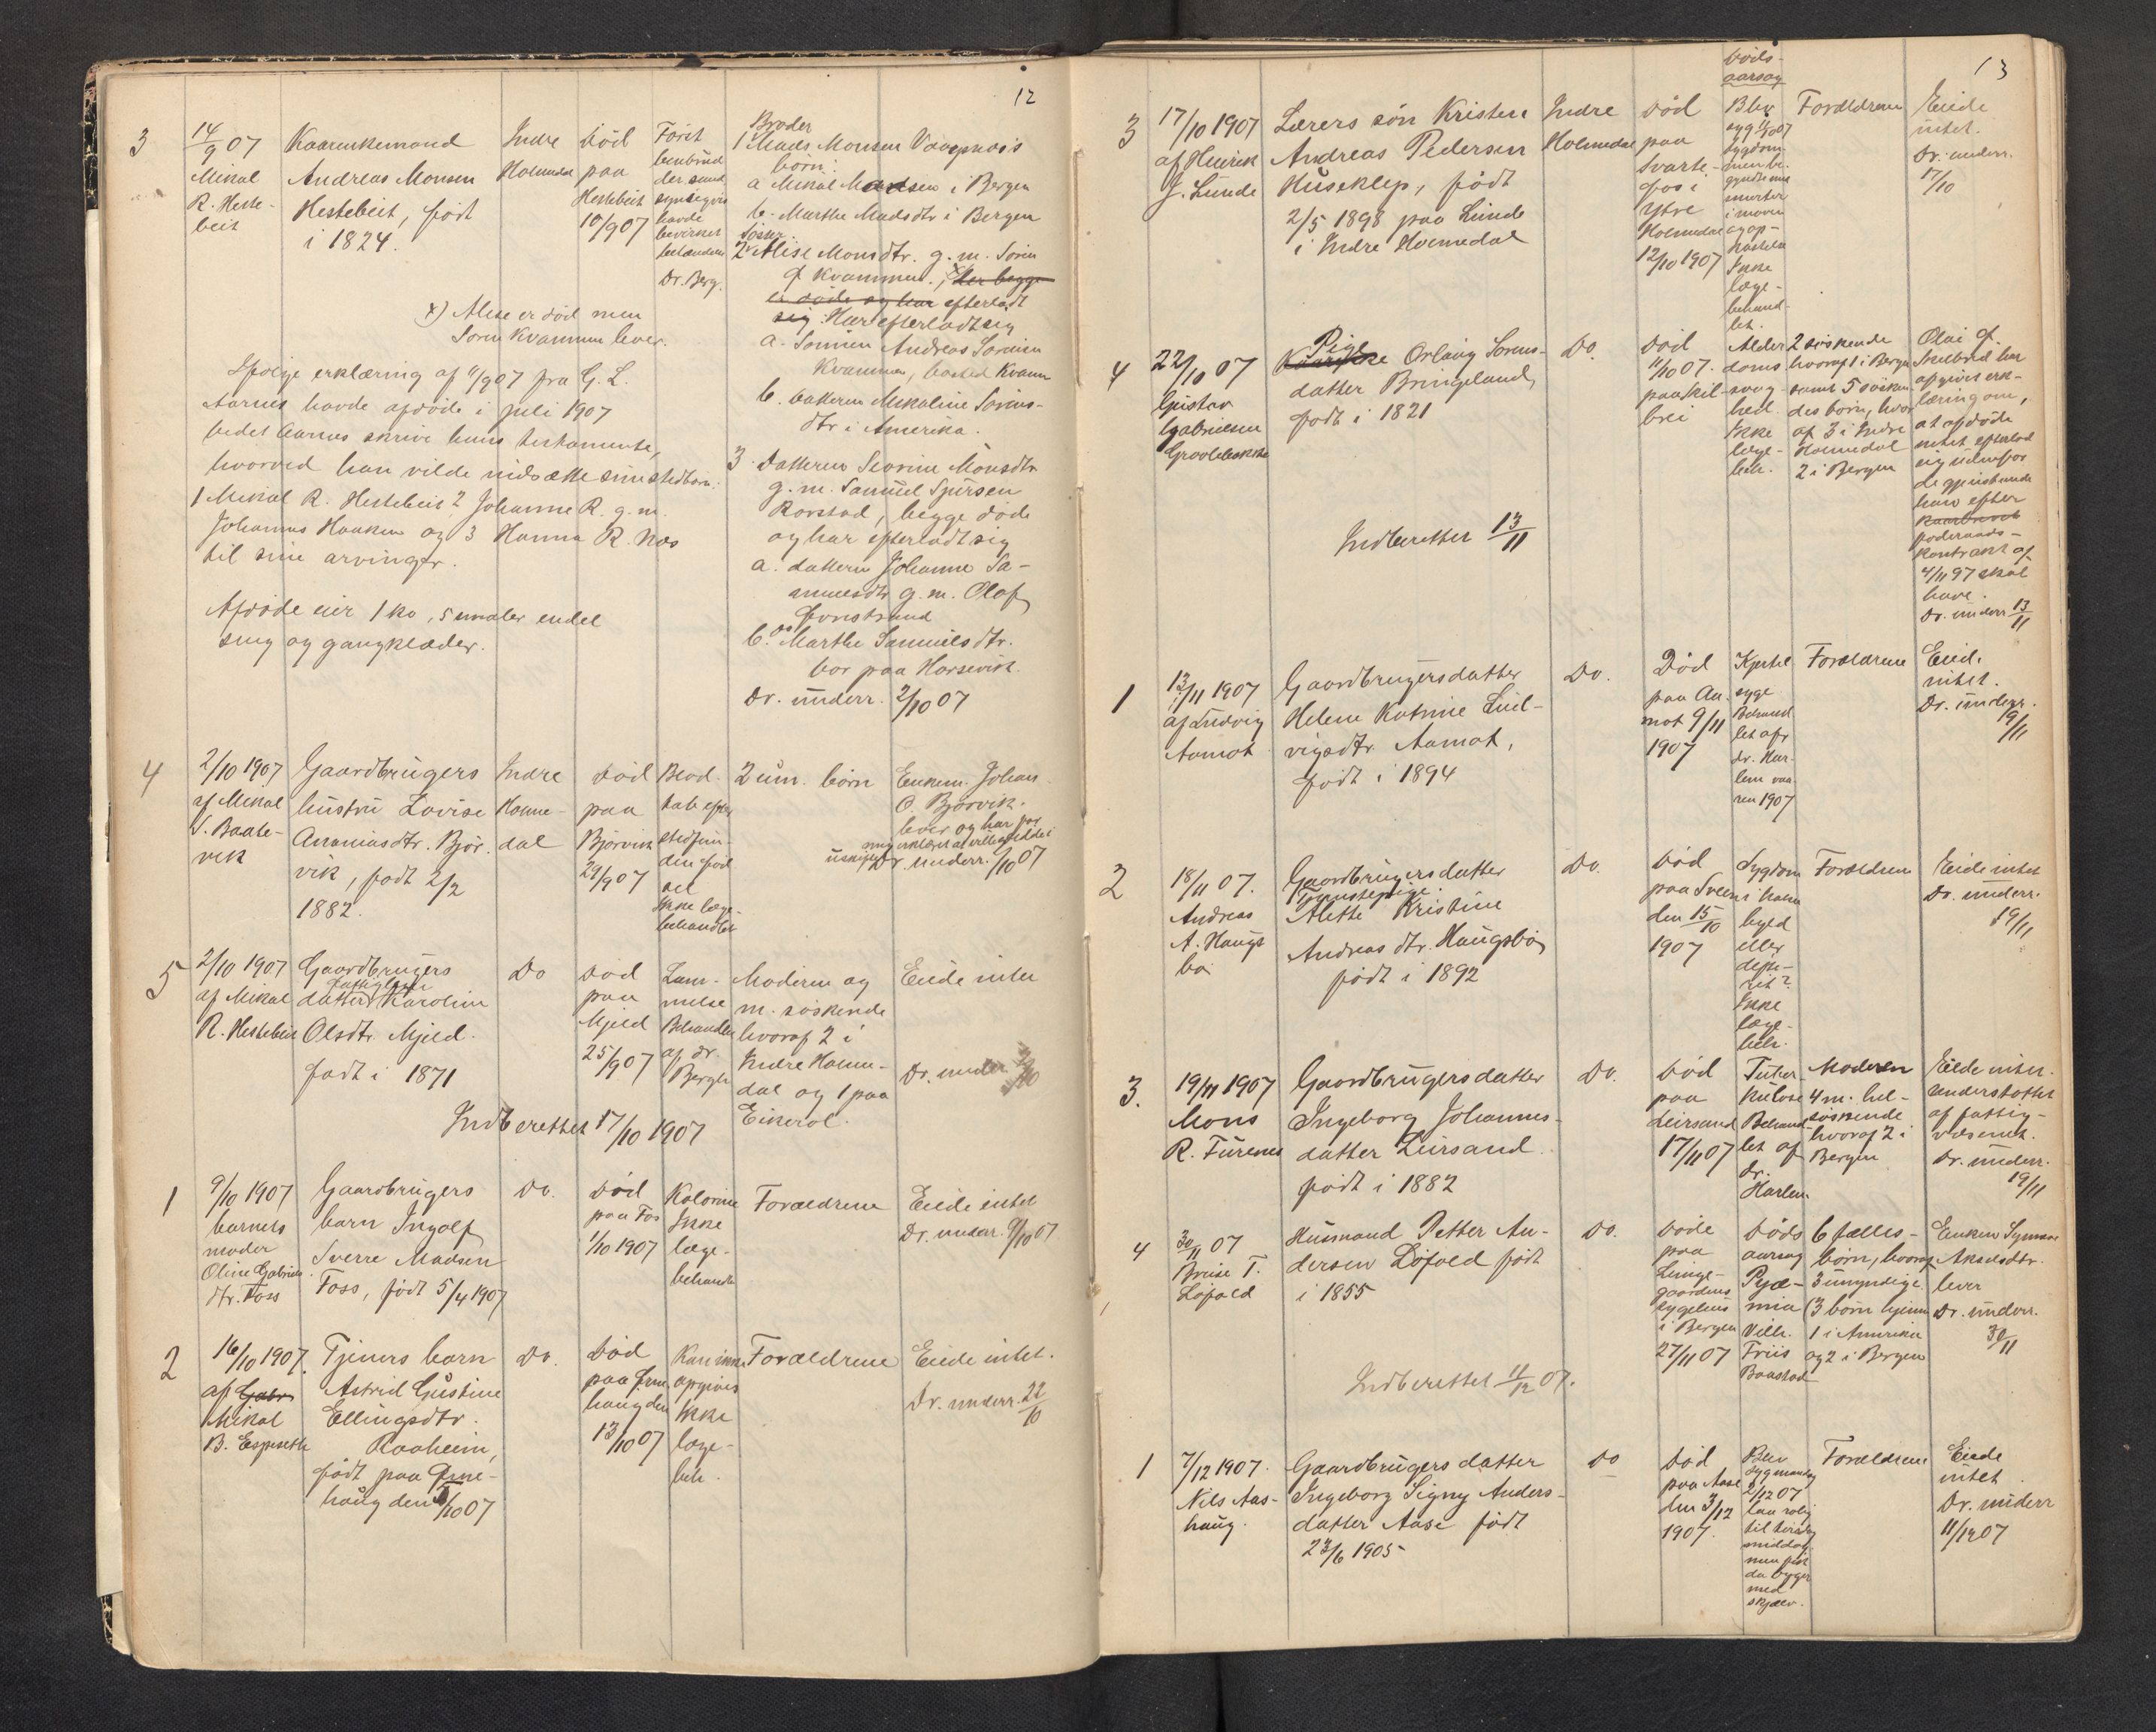 12
3
14/9 07
Mikal
R. Heste-
beit
Kaarenkemand
Andreas Monsen
Hestebeit, født
i 1824.
Indre
Holmedal
Død
paa
Hestebeit
10/9 07
Først
benbrud
havde
bevirket
Dr. Berg.
Broder
1 Mads Monsen Vaagenæs's
børn:
a Mikal Madsen i Bergen
b. Marthe Madsdtr i Bergen
Søster.
2 Alise Monsdtr. g. m. Søren
Kvammen. x) der begge
er døde og har efterladt
sig. Har efterladt sig
a. Sønnen Andreas Sørensen
Kvammen, bosted Kvamm
b. Datteren Mikaline Sørens-
dtr i Amerika.
3. Datteren Severine Monsdtr
g. m. Samuel Sjursen
Rørstad, begge døde
og har efterladt sig
a. datteren Johanne Sa-
muelsdtr g. m. Olaf
b. Do Marthe Samuelsdtr.
bor paa Horsevik.
Dr. underr. 2/10 07
x) Alise er død men
Søren Kvammen lever.
Ifølge erklæring af 11/9 07 fra G. L.
Aarnes havde afdøde i juli 1907
bedet Aarnes skrive hans testamente,
hvorved han vilde indsætte sine stedbørn:
1 Mikal R. Hestebeit 2 Johanne R. g. m.
Johannes Haaken og 3 Hanna R. Næs
til sine arvinger.
Afdøde eier 1 ko, 5 smaler endel
seng og gangklæder.
4
2/10 1907
af Mikal
S. Baate-
vik
Gaardbrugers
hustru Lovise
Ananiasdtr. Bjør-
vik, født 2/2
1882.
Indre
Holme-
dal
Død
paa
Bjørvik
29/9 07
Blod-
tab efter
stedfun-
den fød-
sel
Ikke læge-
behandlet
2 um. børn
Enkem. Johan
O. Bjørvik.
lever og har for
mig erklæret at ville sidde i
uskiftet Dr. underr. 2/10 07
5
2/10 1907
af Mikal
R. Hestebeit
Gaardbrugers
datter Karoline
Olsdtr. Mjeld.
født i 1871
Do
Død
paa
Mjeld
25/9 07
Lam-
melse
Behandlet
af dr.
Bergh
Moderen og
m. søskende
hvoraf 2 i
Indre Holme-
dal og 1 paa
Eikerol.
Eiede intet
Dr. under 2/10
Indberettet 17/10 1907
1
9/10 1907
barnets
moder
Oline Gabriels-
dtr. Foss
Gaardbrugers
barn Ingolf
Sverre Madsen
Foss, født 5/4 1907
Do.
Død
paa Fos
1/10 1907
Kolerine
Ikke
læge-
behandlet
Forældrene
Eiede intet
Dr. underr. 9/10 07
2
16/10 1907.
af Gabr
Mikal
B. Espeseth
Tjeners barn
Astrid Gustine
Ellingsdtr.
Raaheim,
født paa Grne-
haug den 3/10 07
Do.
Død
paa Grne-
haug den
13/10 07
Kan ikke
opgives
Ikke
læge-
beh.
Forældrene
Eiede intet.
Dr. underr. 22/10
13
3
17/10 1907
af Henrik
J. Lunde
Lærers søn Kristen
Andreas Pedersen
Huseklep, født
2/5 1898 paa Lunde
i Indre Holmedal
Indre
Holmedal
Død
paa
Svarte-
fos i
Ytre
Holmedal
12/10 1907
Døds-
aarsag
Blev
syg
sygdom-
men be-
gyndte med
smerter
i maven
og op-
kastelse
Ikke
læge-
behand-
let.
Forældrene
Eiede
intet.
Dr. underr.
17/10
4
22/10 07
Gustav
Gabrielsen
Pige
Orlaug Sørens-
datter Bringeland,
født i 1821
Do.
Død
11/10 07.
paa Kil-
brei
Alder-
doms-
svag-
hed.
Ikke
læge-
beh.
2 søskende
hvoraf 1 i Bergen
samt 5 søsken-
des børn, hvor-
af 3 i Indre
Holmedal
2 i Bergen
Olai J.
Skilbred har
afgivet erk-
læring om,
at afdøde
intet efterlod
sig udenfor
de gjenstande
han efter
føderaads-
kontrakt af
4/11 97 skal
have.
Dr. underr. 13/11
Indberettet 13/11
1
12/11 1907
af Ludvig
Aamot
Gaardbrugersdatter
Helene Katrine Lud-
vigsdtr. Aamot,
født i 1894
Do.
Død
paa Aa-
mot 9/11
1907
Kjertel
syge
Behand-
let af
dr. Har-
lem vaa-
ren 1907
Forældrene
Eied.
intet.
Dr. underr.
19/11
2
18/11 07.
Andreas
A. Haugs-
bø
Gaardbrugersdatter
Tjenestepige
Alette Kristine
Andreasdtr. Haugsbø,
født i 1892
Do.
Død
paa Sveen
den 15/10
1907
Sygdom
i halsen
byld
eller
difte-
rit?
Ikke
læge-
beh.
Forældrene
Eiede intet
Dr. underr.
19/11
3.
19/11 1907
Mons
R. Furenes
Gaardbrugersdatter
Ingeborg Johannes-
datter Leirsand.
født i 1882
Do.
Død
paa
Leirsand
17/11 07
Tuber-
kulose
Behand-
let af
Dr.
Harlem
Moderen
4 m. hel-
søskende
hvoraf 2 i
Bergen
Eiede intet.
understøttet
af fattig-
væsenet.
Dr. underr.
19/11
4
30/11 07
Brite T.
Løfald
Husmand Petter An-
dersen Løfald født
i 1855
Do.
Døde
paa
Lunge-
gaardens
sygehus
i Bergen
27/11 07
Døds
aarsag
Pyæ-
mia
Vilh.
Friis
Baastad
6 fælles-
børn, hvoraf
3 umyndige.
(3 børn hjemme
1 i Amerika
og 2 i Bergen
Enken Synneve
Akselsdtr.
lever
Dr. underr.
30/11
Indberettet 11/12 07.
1
7/12 1907.
Nils Aas-
haug.
Gaardbrugers datter
Ingeborg Signy Anders-
datter Aase født
23/6 1905
Do
Død
paa Aase
den 3/12
1907.
Blev
syg mandag
2/12 07
laa rolig
til tirsdag
middag
men fik
da byger
med
skjælv.
Forældrene
Eiede
intet.
Dr. underr
11/12 07